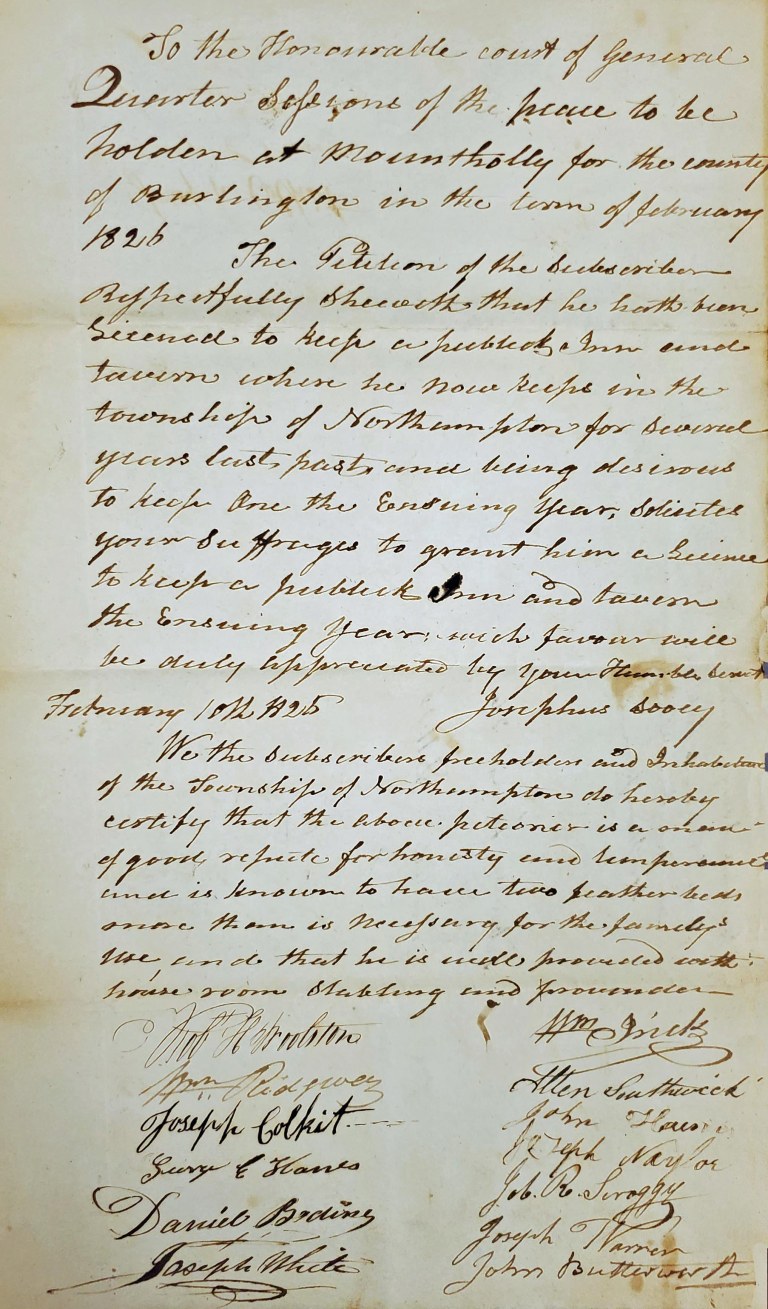 To the Honourable court of General
Quarter Sessions of the peace to be
holden at Mountholly for the county
of Burlington in the term of february
1826
The Petition of the Subscriber
Respectfully Sheweth that he hath been
Licensed to keep a publick Inn and
tavern where he now keeps in the
township of Northampton for several
years last past, and being desirous
to keep One the Ensuing Year, Solicites
your Suffrages to grant him a Licence
to keep a publick Inn and tavern
the Ensuing Year wich favour will
be duly appreciated by your Humble Servt
February 10th 1826 Josephus Sooey
We the Subscribers freeholders and Inhabitants
of the Township of Northampton do hereby
certify that the above petioner is a man
of good repute for honesty and temperance
and is known to have two feather beds
more than is necessary for the family's
use, and that he is well provided with
house room Stabling and provender
Wm Irick
Wm Ridgway Allen Southwick
Joseph Colkit John
George C Haines Joseph Naylor
Job. R. Scroggy
Daniel Bodine Joseph Warren
Joseph White John Butterworth